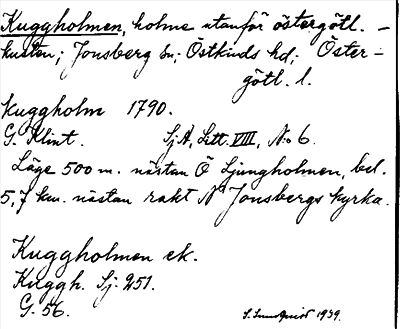 Kuggholmen, holme utanför östergötl.-
kusten; Jonsberg sn; Östkinds hd; Öster-
götl. l.
Kuggholm 1790.
G. Klint. Sj.A, Litt. VIII, No 6.
Läge 500 m. nästan Ö Ljungholmen, bel.
5,7 km. nästan rakt N Jonsbergs kyrka.
Kuggholmen ek.
Kuggh. Sj. 251.
G. 56.
S. Sundquist 1939.